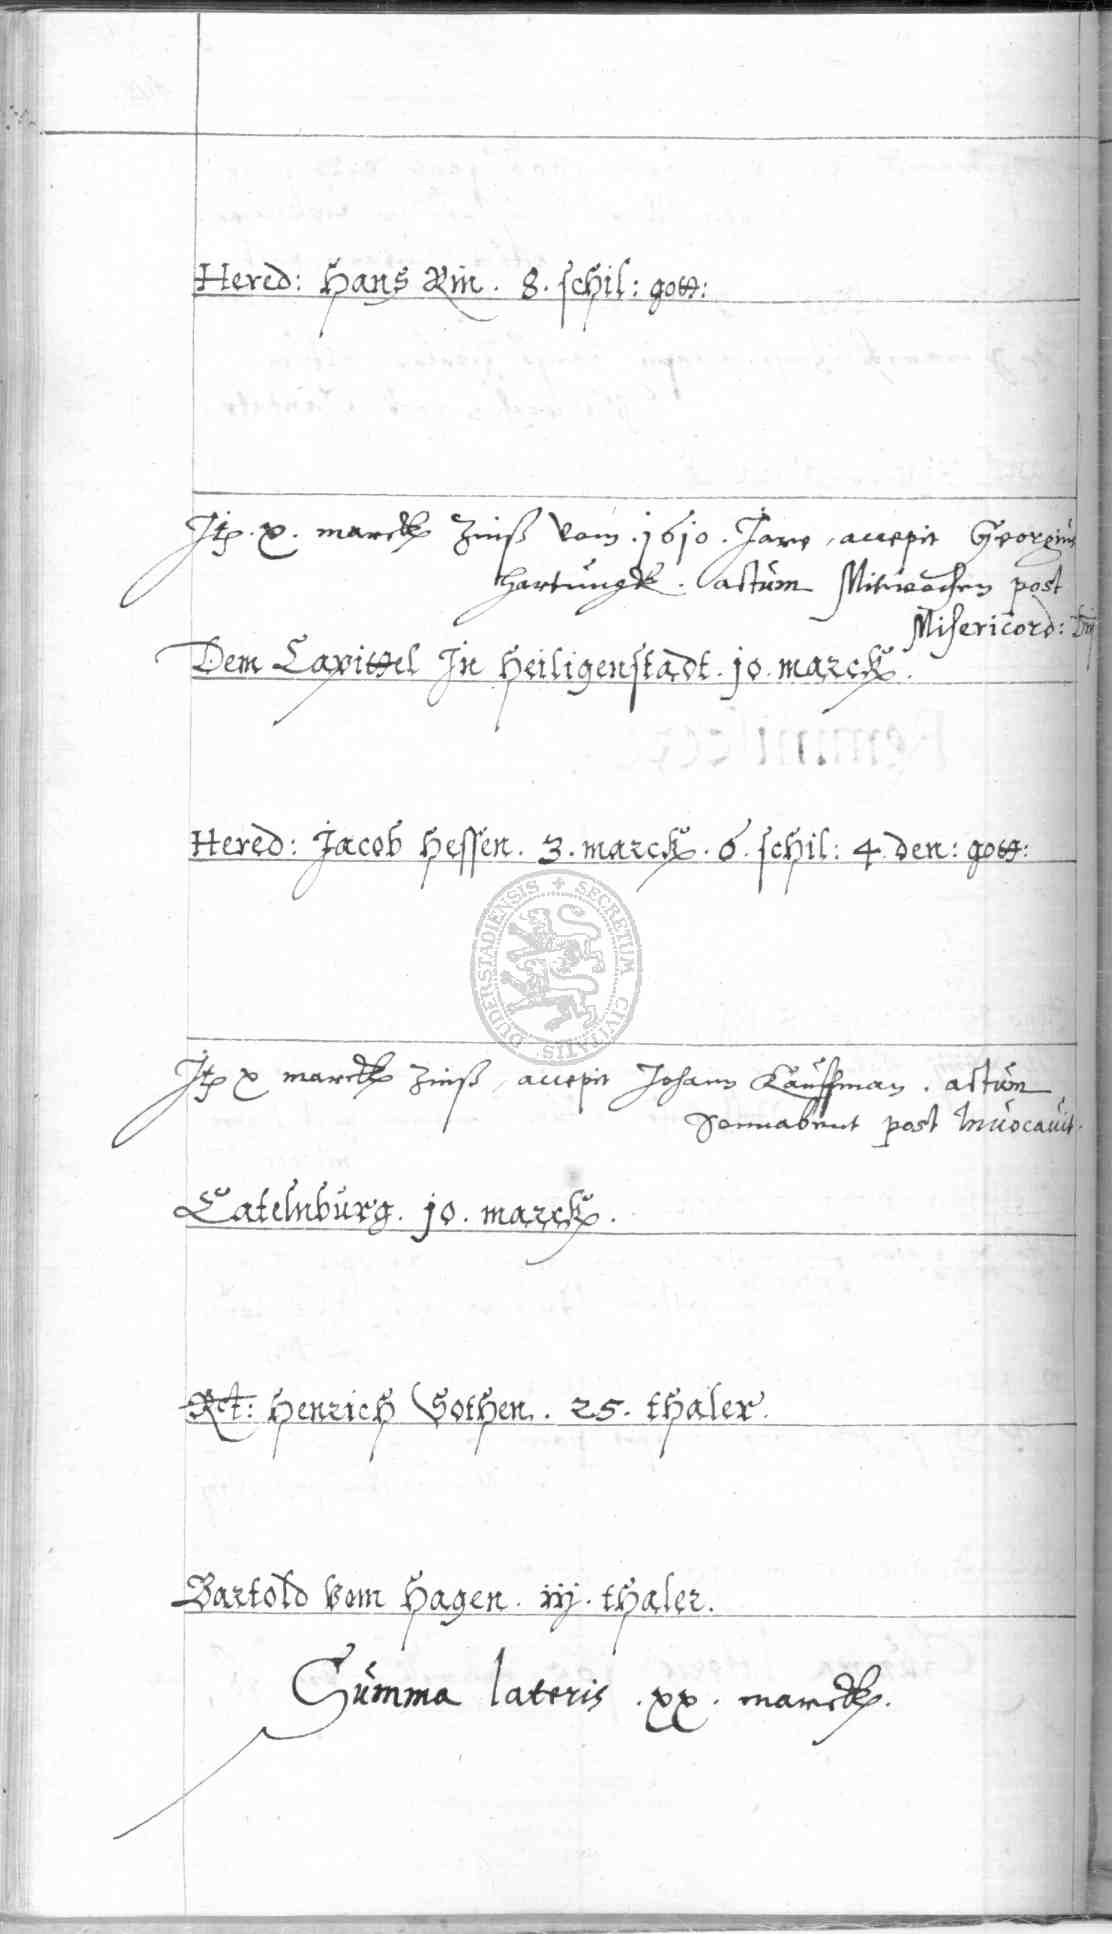 Hered: Hans Rin. 8. schil: gott:
Jtem x. marck zinß vom .1610. Jare, accepit Georgius
Hartungk. actum Mitwochen post
Misericord: Dnj
Dem Capittel Jn Heiligenstadt. 10. marck.
Hered: Jacob Hessen. 3. marck. 6. schil: 4 den: gott:
DUDERSTADIENSIS + SECRETUM CIVITATIS
Jtem x marck zinß, accepit Johann Kauffman. actum
Sonnabent post Invocavit.
Catelnburg. 10. marck.
Rct: Henrich Gothen. 25. thaler.
Bartold vom Hagen. iij. thaler.
Summa lateris .xx. marck.